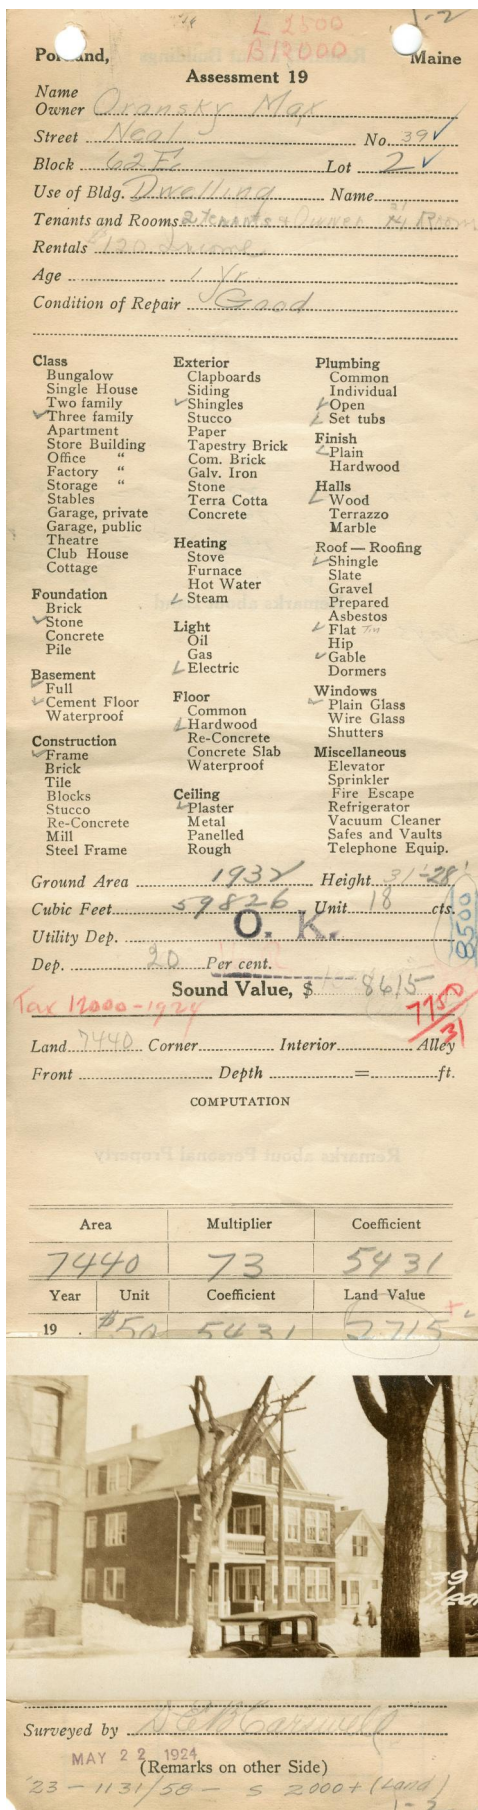 1-2
L 2500
B 12000
Portland, Maine
Assessment 19
Name
Owner Oransky Max
Street Neal No. 39 ✓
Block 62 E. Lot 2 ✓
Use of Bldg. Dwelling Name
Tenants and Rooms 2 tenants & Owner Rooms
Rentals 120 Income
Age 1 yr.
Condition of Repair Good
Class
Bungalow
Single House
Two family
✓ Three family
Apartment
Store Building
Office "
Factory "
Storage "
Stables
Garage, private
Garage, public
Theatre
Club House
Cottage
Foundation
Brick
✓ Stone
Concrete
Pile
Basement
✓ Full
✓ Cement Floor
Waterproof
Construction
✓ Frame
Brick
Tile
Blocks
Stucco
Re-Concrete
Mill
Steel Frame
Exterior
Clapboards
Siding
✓ Shingles
Stucco
Paper
Tapestry Brick
Com. Brick
Galv. Iron
Stone
Terra Cotta
Concrete
Heating
Stove
Furnace
Hot Water
✓ Steam
Light
Oil
Gas
✓ Electric
Floor
Common
✓ Hardwood
Re-Concrete
Concrete Slab
Waterproof
Ceiling
✓ Plaster
Metal
Panelled
Rough
Plumbing
Common
Individual
✓ Open
✓ Set tubs
Finish
✓ Plain
Hardwood
Halls
✓ Wood
Terrazzo
Marble
Roof — Roofing
✓ Shingle
Slate
Gravel
Prepared
Asbestos
✓ Flat Tin
Hip
✓ Gable
Dormers
Windows
✓ Plain Glass
Wire Glass
Shutters
Miscellaneous
Elevator
Sprinkler
Fire Escape
Refrigerator
Vacuum Cleaner
Safes and Vaults
Telephone Equip.
Ground Area 1932 Height 31'-28'
Cubic Feet 59826 Unit 18 cts.
8500
Utility Dep. O. K.
Dep. 20 Per cent.
Sound Value, $ 8615
Tax 12000-1924
7750/31
Land 7440 Corner Interior Alley
Front Depth = ft.
COMPUTATION
Area Multiplier Coefficient
7440 73 5431
Year Unit Coefficient Land Value
19 . $50 5431 2715
39
Neal
Surveyed by
MAY 22 1924
(Remarks on other Side)
'23 - 1131/58 - S 2000+ (Land)
1-3